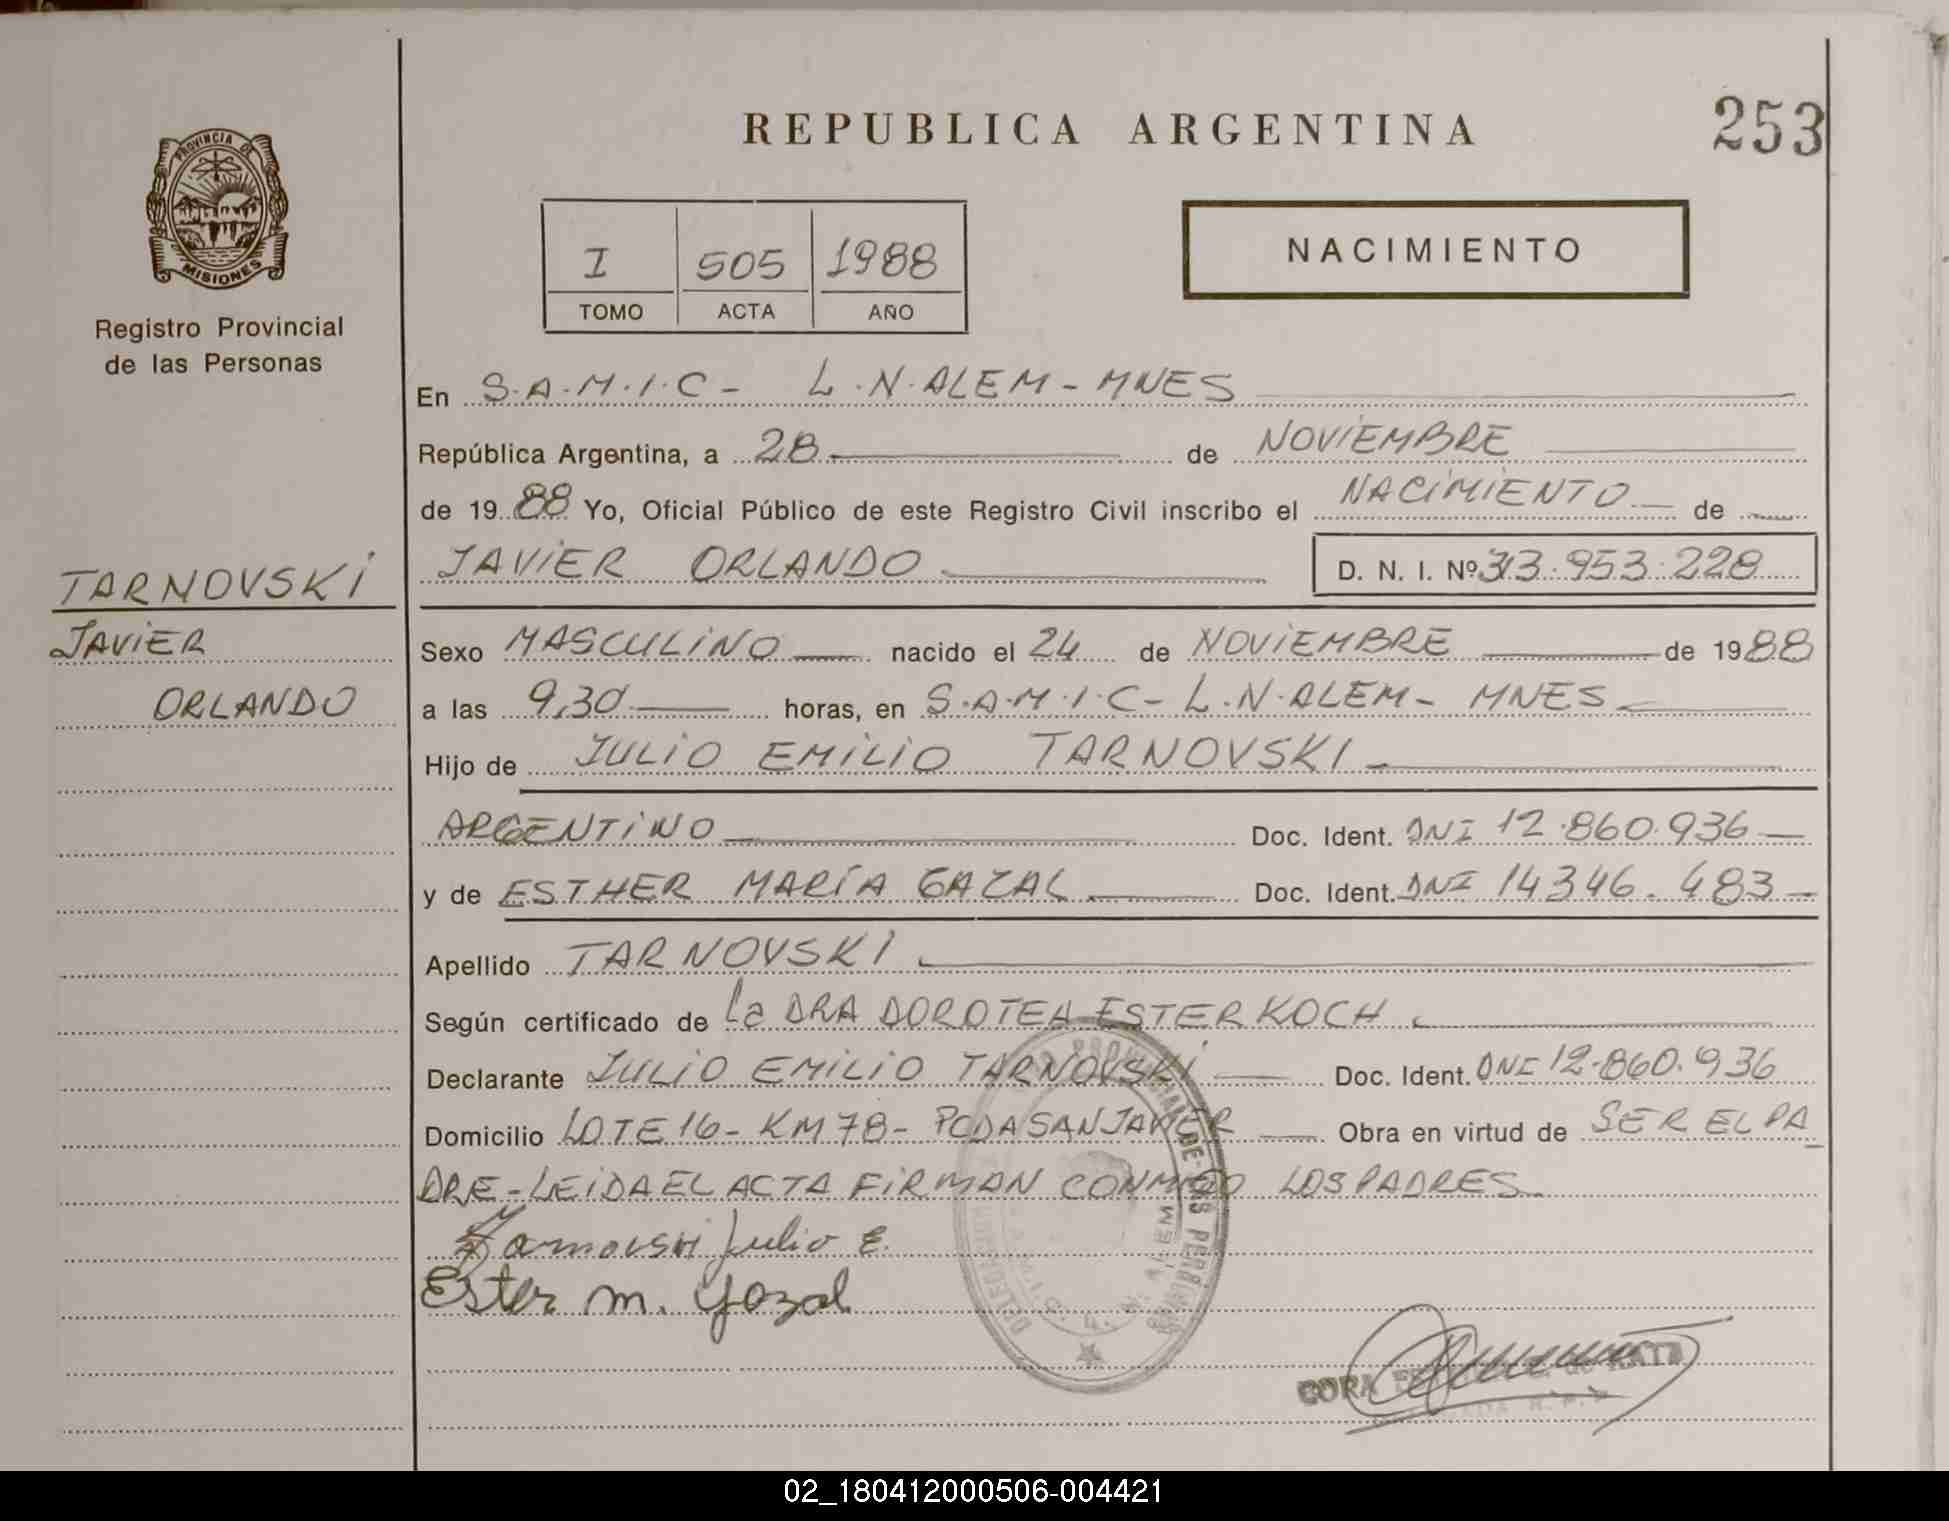 REPUBLICA ARGENTINA
253
PROVINCIA DE
MISIONES
Registro Provincial
de las Personas
I 505 1988
TOMO ACTA AÑO
NACIMIENTO
En S.A.M.I.C - L.N.ALEM - MNES
República Argentina, a 28 de NOVIEMBRE
de 1988 Yo, Oficial Público de este Registro Civil inscribo el NACIMIENTO de
JAVIER ORLANDO D. N. I. Nº 33.953.228
TARNOVSKI
JAVIER
ORLANDO
Sexo MASCULINO nacido el 24 de NOVIEMBRE de 1988
a las 9,30 horas, en S.A.M.I.C - L.N.ALEM - MNES
Hijo de JULIO EMILIO TARNOVSKI
ARGENTINO Doc. Ident. DNI 12.860.936
y de ESTHER MARÍA GAZAL Doc. Ident. DNI 14346.483
Apellido TARNOVSKI
Según certificado de La DRA DOROTEA ESTER KOCH
Declarante JULIO EMILIO TARNOVSKI Doc. Ident. DNI 12.860.936
Domicilio LOTE 16 - KM 78 - PCDA SAN JAVIER Obra en virtud de SER EL PA
DRE - LEIDA EL ACTA FIRMAN CONMIGO LOS PADRES
Tarnovski Julio E.
Ester M. Gazal
CORA
02_180412000506-004421